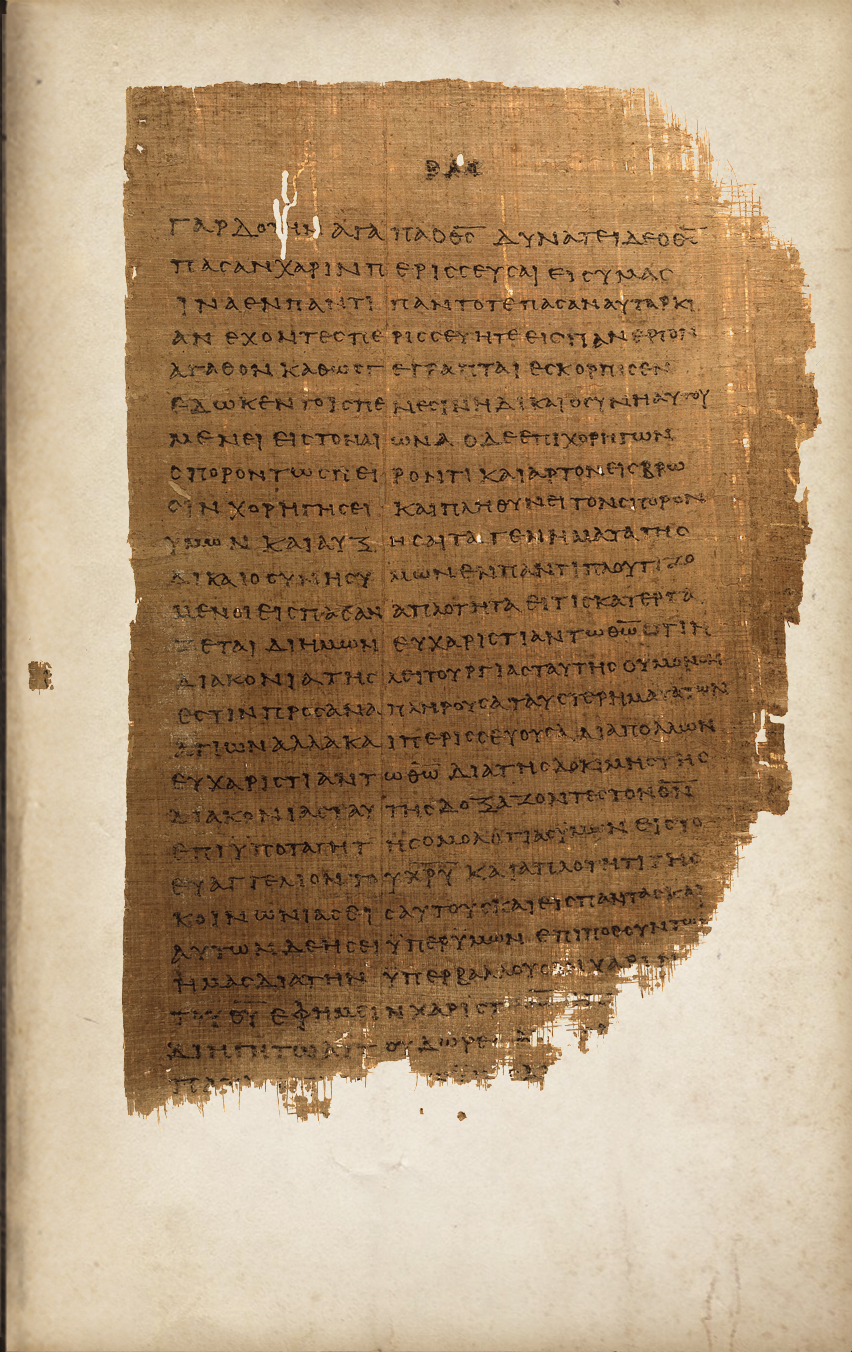 ΓΑΡ ΔΟΤΗΝ ΑΓΑΠΑ Ο Θ̅Σ̅ ΔΥΝΑΤΕΙ ΔΕ Ο Θ̅Σ̅
ΠΑϹΑΝ ΧΑΡΙΝ ΠΕΡΙϹϹΕΥϹΑΙ ΕΙϹ ΥΜΑϹ
ΙΝΑ ΕΝ ΠΑΝΤΙ ΠΑΝΤΟΤΕ ΠΑϹΑΝ ΑΥΤΑΡΚΙ
ΑΝ ΕΧΟΝΤΕϹ ΠΕΡΙϹϹΕΥΗΤΕ ΕΙϹ ΠΑΝ ΕΡΓΟΝ
ΑΓΑΘΟΝ ΚΑΘΩϹ ΓΕΓΡΑΠΤΑΙ ΕϹΚΟΡΠΙϹΕΝ
ΕΔΩΚΕΝ ΤΟΙϹ ΠΕΝΕϹΙΝ Η ΔΙΚΑΙΟϹΥΝΗ ΑΥΤΟΥ
ΜΕΝΕΙ ΕΙϹ ΤΟΝ ΑΙΩΝΑ Ο ΔΕ ΕΠΙΧΟΡΗΓΩΝ
ϹΠΟΡΟΝ ΤΩ ϹΠΕΙΡΟΝΤΙ ΚΑΙ ΑΡΤΟΝ ΕΙϹ ΒΡΩ
ϹΙΝ ΧΟΡΗΓΗϹΕΙ ΚΑΙ ΠΛΗΘΥΝΕΙ ΤΟΝ ϹΠΟΡΟΝ
ΥΜΩΝ ΚΑΙ ΑΥΞΗϹΑΙ ΤΑ ΓΕΝΗΜΑΤΑ ΤΗϹ
ΔΙΚΑΙΟϹΥΝΗϹ ΥΜΩΝ ΕΝ ΠΑΝΤΙ ΠΛΟΥΤΙΖΟ
ΜΕΝΟΙ ΕΙϹ ΠΑϹΑΝ ΑΠΛΟΤΗΤΑ ΕΙ ΤΙϹ ΚΑΤΕΡΓΑ
ΖΕΤΑΙ ΔΙ ΗΜΩΝ ΕΥΧΑΡΙϹΤΙΑΝ ΤΩ Θ̅Ω̅ ΟΤΙ Η
ΔΙΑΚΟΝΙΑ ΤΗϹ ΛΕΙΤΟΥΡΓΙΑϹ ΤΑΥΤΗϹ ΟΥ ΜΟΝΟΝ
ΕϹΤΙΝ ΠΡΟϹΑΝΑΠΛΗΡΟΥϹΑ ΤΑ ΥϹΤΕΡΗΜΑΤΑ ΤΩΝ
ΑΓΙΩΝ ΑΛΛΑ ΚΑΙ ΠΕΡΙϹϹΕΥΟΥϹΑ ΔΙΑ ΠΟΛΛΩΝ
ΕΥΧΑΡΙϹΤΙΑΝ ΤΩ Θ̅Ω̅ ΔΙΑ ΤΗϹ ΔΟΚΙΜΗϹ ΤΗϹ
ΔΙΑΚΟΝΙΑϹ ΤΑΥΤΗϹ ΔΟΞΑΖΟΝΤΕϹ ΤΟΝ Θ̅Ν̅
ΕΠΙ ΥΠΟΤΑΓΗ Τ ΗϹ ΟΜΟΛΟΓΙΑϹ ΥΜΩΝ ΕΙϹ ΤΟ
ΕΥΑΓΓΕΛΙΟΝ ΤΟΥ Χ̅Ρ̅Υ̅ ΚΑΙ ΑΠΛΟΤΗΤΙ ΤΗϹ
ΚΟΙΝΩΝΙΑϹ ΕΙϹ ΑΥΤΟΥϹ ΚΑΙ ΕΙϹ ΠΑΝΤΑϹ ΚΑΙ
ΑΥΤΩΝ ΔΕΗϹΕΙ ΥΠΕΡ ΥΜΩΝ ΕΠΙΠΟΘΟΥΝΤΩΝ
ΗΜΑϹ ΔΙΑ ΤΗΝ ΥΠΕΡΒΑΛΛΟΥϹΑΝ ΧΑΡΙΝ
ΤΟΥ Θ̅Υ̅ ΕΦ ΗΜΕΙΝ ΧΑΡΙϹ
ΔΙΗΓΗΤΩ ΑΥΤΟΥ ΔΩΡΕΑ